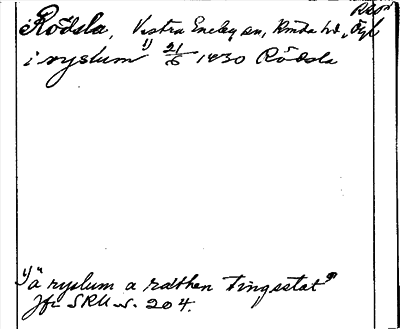 Rödsla, Västra Eneby sn, Kinda hd, Ögl
i ryslum 1) 21/6 1430 Rödsla
1) "a ryslum a rathen tingsstat"
Jfr SRU nr. 204.